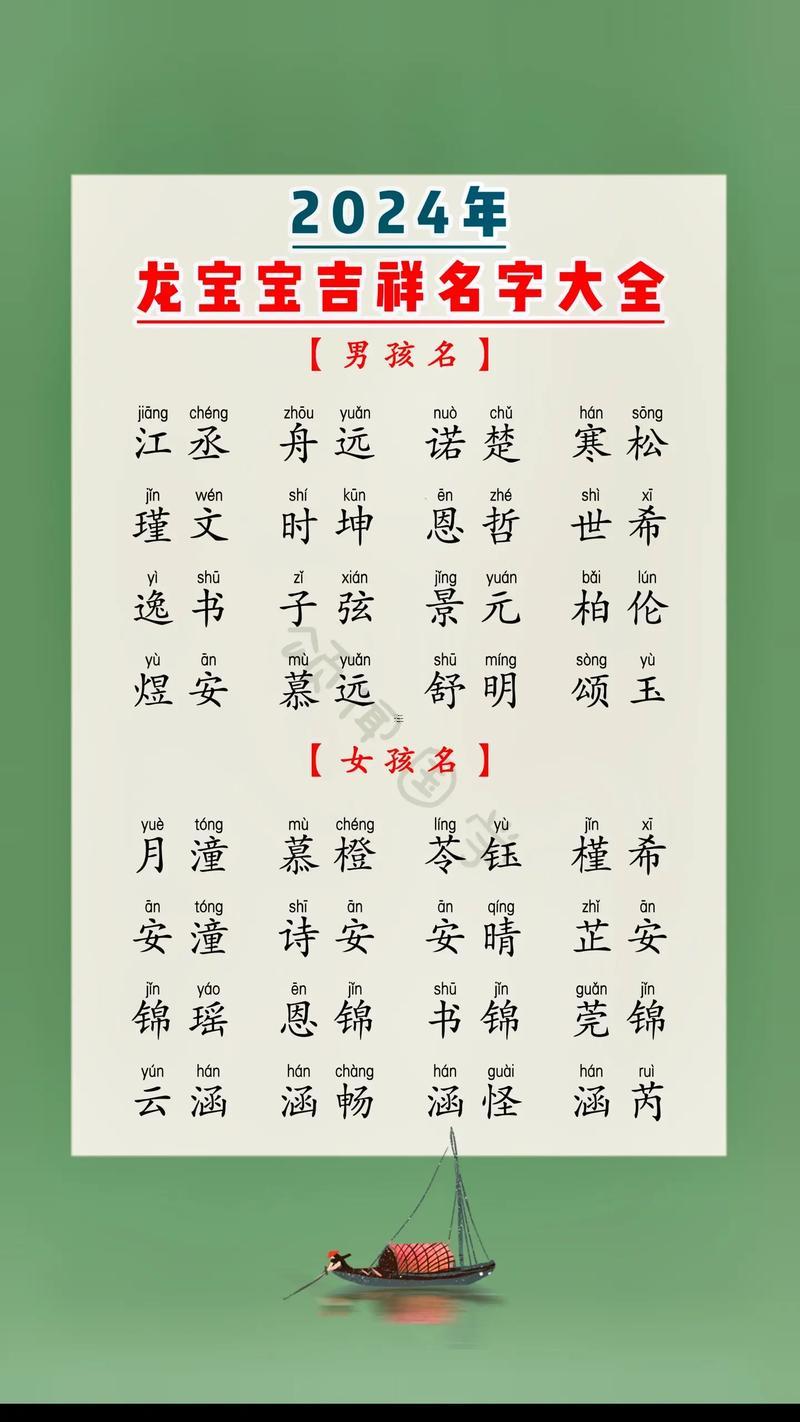 2024年
龙宝宝吉祥名字大全
【男孩名】
jiāng chéng zhōu yuǎn nuò chǔ hán sōng
江丞 舟远 诺楚 寒松
jǐn wén shí kūn ēn zhé shì xī
瑾文 时坤 恩哲 世希
yì shū zǐ xián jǐng yuán bǎi lún
逸书 子弦 景元 柏伦
yù ān mù yuǎn shū míng sòng yù
煜安 慕远 舒明 颂玉
【女孩名】
yuè tóng mù chéng líng yù jǐn xī
月潼 慕橙 苓钰 槿希
ān tóng shī ān ān qíng zhǐ ān
安潼 诗安 安晴 芷安
jǐn yáo ēn jǐn shū jǐn guǎn jǐn
锦瑶 恩锦 书锦 莞锦
yún hán hán chàng hán guài hán ruì
云涵 涵畅 涵怪 涵芮